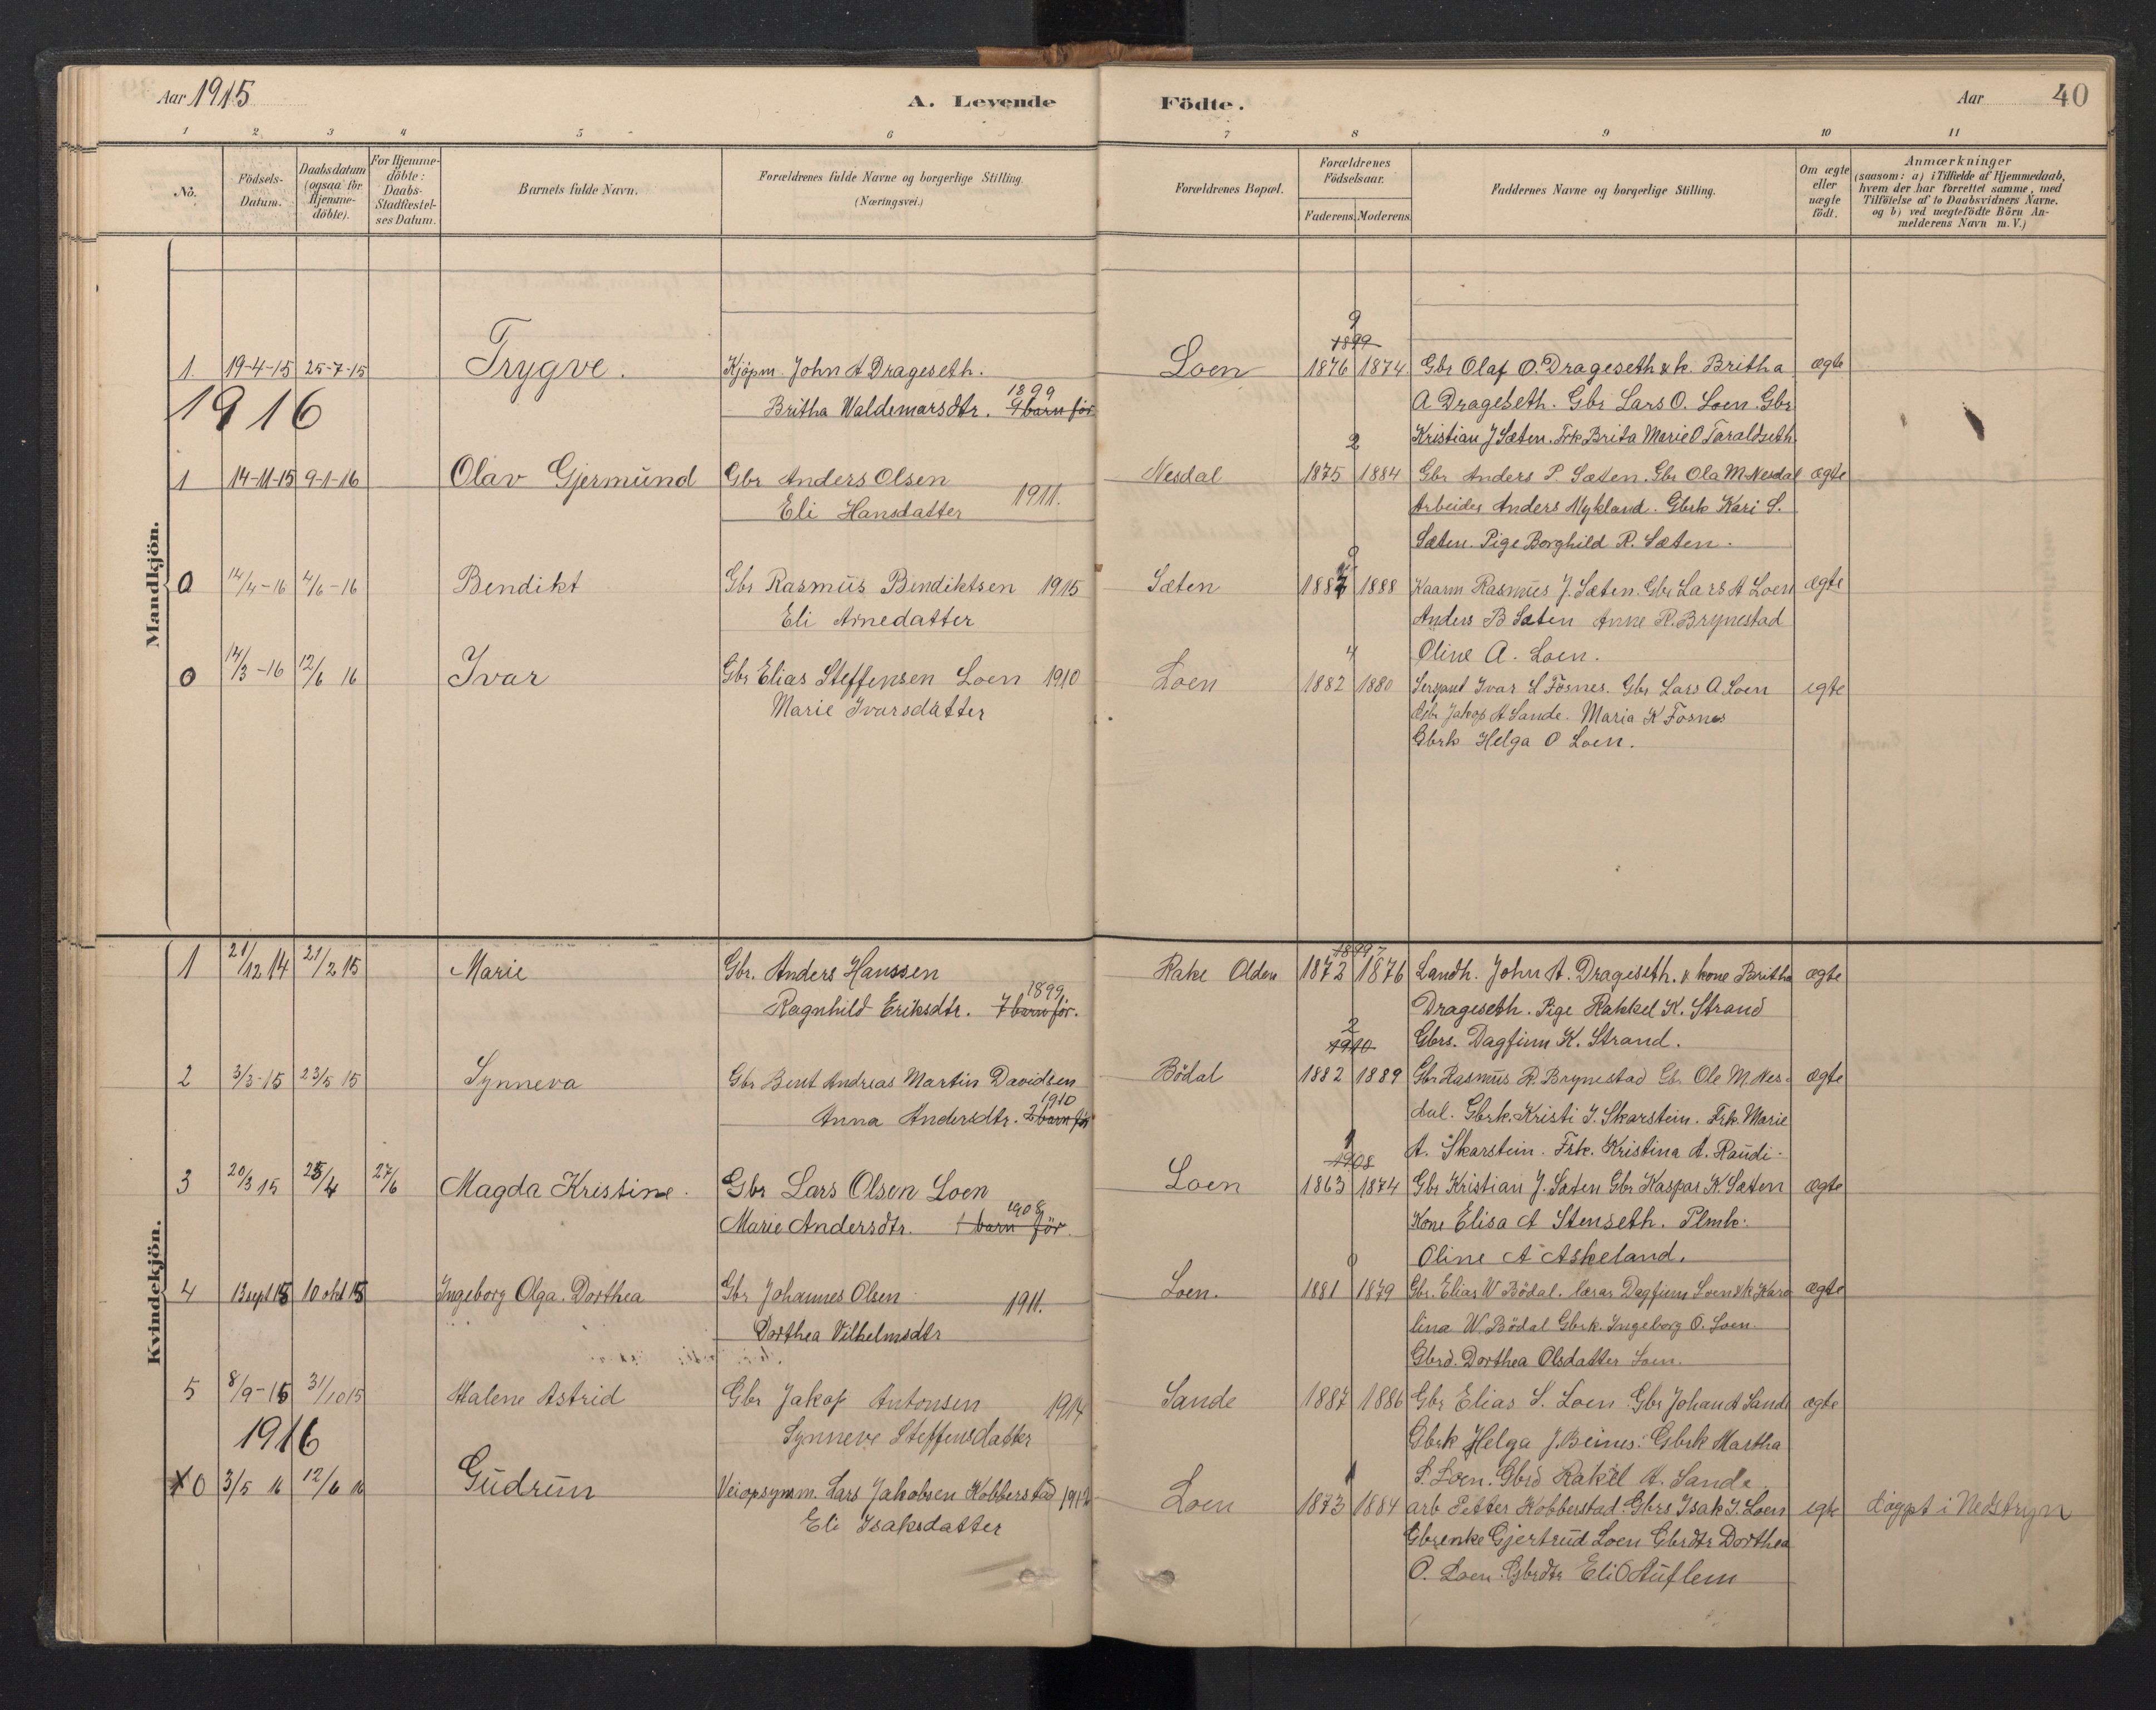 Aar 1915
A. Levende
Födte.
Aar
40
1 2 3 4 5 6 7 8 9 10 11
No.
Födsels-
Datum.
Daabsdatum
(ogsaa for
Hjemme-
döbte).
For Hjemme-
döbte:
Daabs-
Stadfæstel-
ses Datum.
Barnets fulde Navn.
Forældrenes fulde Navne og borgerlige Stilling.
(Næringsvei.)
Forældrenes Bopæl.
Forældrenes
Födselsaar.
Faderens. Moderens.
Faddernes Navne og borgerlige Stilling.
Om ægte
eller
uægte
födt.
Anmærkninger
(saasom: a) i Tilfælde af Hjemmedaab,
hvem der har forrettet samme, med
Tilföielse af to Daabsvidners Navne.
og b) ved uægtefödte Börn An-
melderens Navn m. V.)
Mandkjön.
9
1899
1. 19-4-15 25-7-15 Trygve. Kjöpm. John A Drageseth. Loen 1876 1874 Gbr Olaf O. Drageseth & k. Britha ægte
1899
Britha Waldemarsdtr. 9 barn för A Drageseth. Gbr Lars O. Loen. Gbr
1916
2 Kristian J Sæten. Frk Brita Marie O Taraldseth
1 14-11-15 9-1-16 Olav Gjermund Gbr Anders Olsen 1911. Nesdal 1875 1884 Gbr Anders P. Sæten. Gbr Ola M. Nesdal ægte
Eli Hansdatter Arbeider Anders Mykland. Gbrk Kari S.
Sæten. Pige Borghild R. Sæten.
0 14/4-16 4/6-16 Bendikt Gbr Rasmus Bendiktsen 1915 Sæten 1887 1888 Kaarm Rasmus J. Sæten. Gbr Lars A Loen ægte
Eli Arnedatter Anders B Sæten Anne R. Brynestad
4 Oline A. Loen.
0 14/3-16 12/6 16 Ivar Gbr Elias Steffensen Loen 1910 Loen 1882 1880 Sersjant Ivar L Fosnes. Gbr Lars A Loen egte
Marie Ivarsdatter Gbr Jakop A Sande. Maria K Fosnes
Gbrk Helga O Loen.
Kvindekjön.
1899 7
1 21/12 14 21/2 15 Marie Gbr. Anders Hanssen Rake Olden 1872 1876 Landh. John A. Drageseth. & kone Britha ægte
1899
Ragnhild Eriksdtr. 7 barn för. Drageseth. Pige Rakkel K. Strand
2
1910 Gbrs. Dagfinn K. Strand.
2 3/3-15 23/5 15 Synneva Gbr Bent Andreas Martin Davidsen Bödal 1882 1889 Gbr Rasmus R. Brynestad Gb. Ole M. Nes- ægte
1910
Anna Andersdtr. 2 barn för dal. Gbrk. Kristi J. Skarstein. Frk. Marie
1
1908 A. Skarstein. Frk. Kristina A. Raudi.
3 20/3 15 25/4 27/6 Magda Kristine. Gbr Lars Olsen Loen Loen 1863 1874 Gbr Kristian J. Sæten Gbr Kaspar K. Sæten ægte
1908
Marie Andersdtr. 1 barn för. Kone Elisa A Stenseth. Plmk.
0 Oline A Askeland.
4 13 sept 15 10 okt 15 Ingeborg Olga. Dorthea Gbr Johannes Olsen 1911. Loen. 1881 1879 Gbr. Elias W Bödal. lærar Dagfinn Loen & k Karo ægte
Dorthea Vilhelmsdtr lina W. Bödal Gbrk. Ingeborg O. Loen.
Gbrd. Dorthea Olsdatter Loen.
5 8/9-15 31/10 15 Malene Astrid Gbr Jakop Antonsen 1914 Sande 1887 1886 Gbr Elias S. Loen Gbr Johan A Sande ægte
Synneve Steffensdatter Gbrk Helga J. Beines. Gbrk Martha
1916
1 S. Loen. Gbrd Rakel A. Sande.
0 3/5 16 12/6 16 Gudrun Veiopsynm. Lars Jakobsen Kobberstad 1912 Loen 1873 1884 arb Petter Kobberstad. Gbrs Isak J. Loen egte döypt i Nedstryn
Eli Isaksdatter Gbrenke Gjertrud Loen Gbrdtr Dorthea
O. Loen. Gbrdtr Eli O Auflem